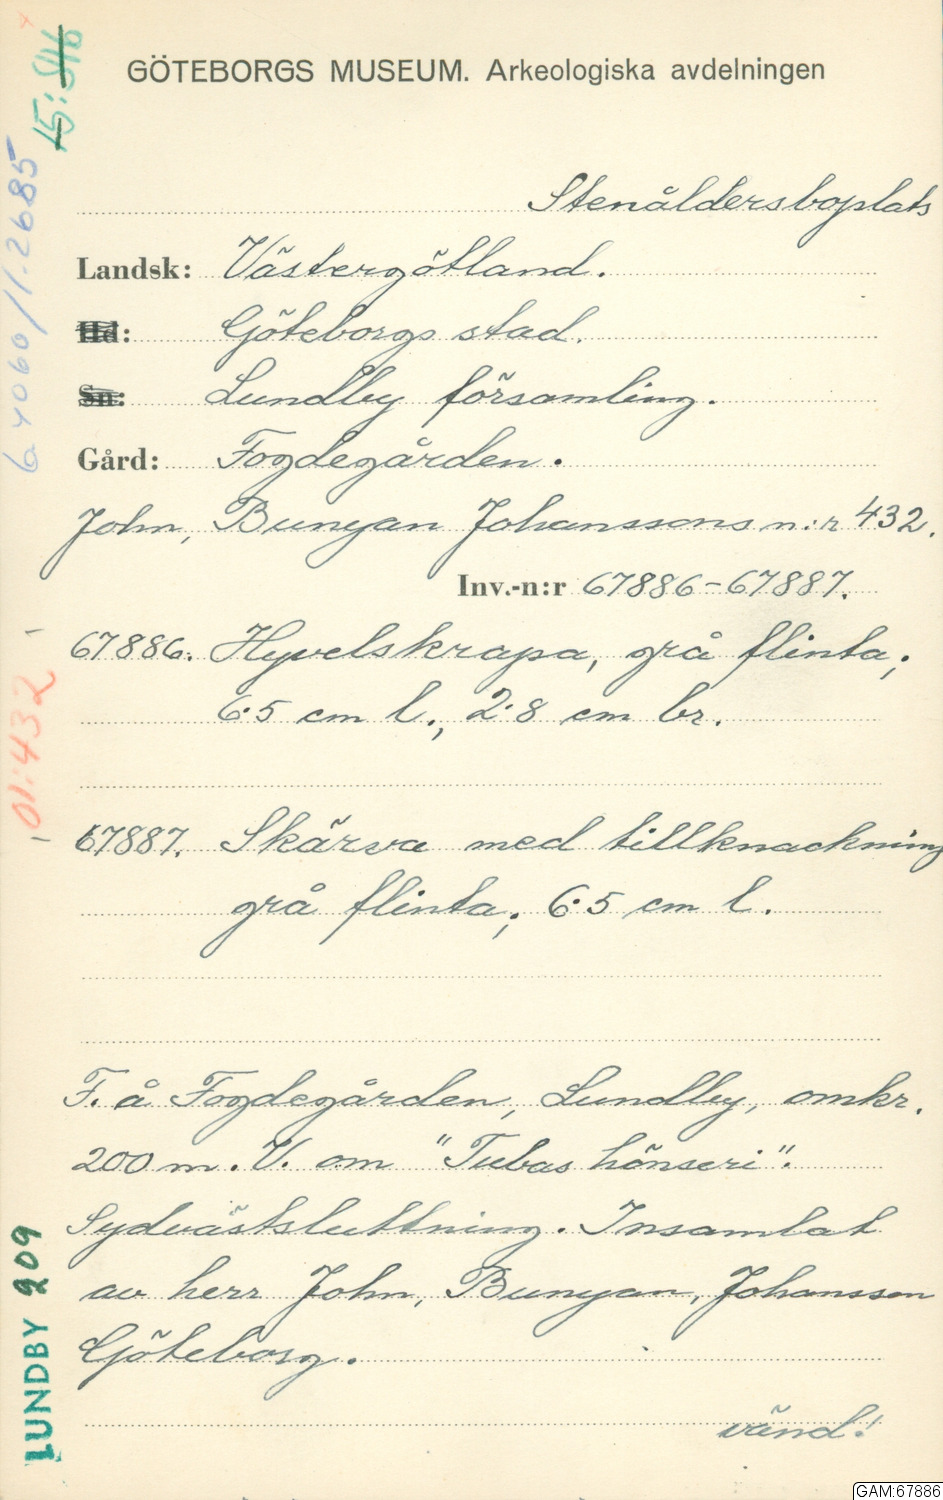 15:546
GÖTEBORGS MUSEUM. Arkeologiska avdelningen
64060/1.2685
Stenåldersboplats
Landsk: Västergötland.
Hd: Göteborgs stad.
Sn: Lundby församling.
Gård: Fogdegården.
John, Bunyan Johanssons n:r 432.
Inv.-n:r 67886-67887.
67886. Hyvelskrapa, grå flinta;
6.5 cm l., 2.8 cm br.
- 01:432 -
67887. Skärva med tillknackning
grå flinta; 6.5 cm l.
F. å Fogdegården, Lundby, omkr.
200 m. V. om "Tubas hönseri".
Sydvästsluttning. Insamlat
av herr John, Bunyan, Johansson
Göteborg.
LUNDBY 209
vänd!
GAM:67886